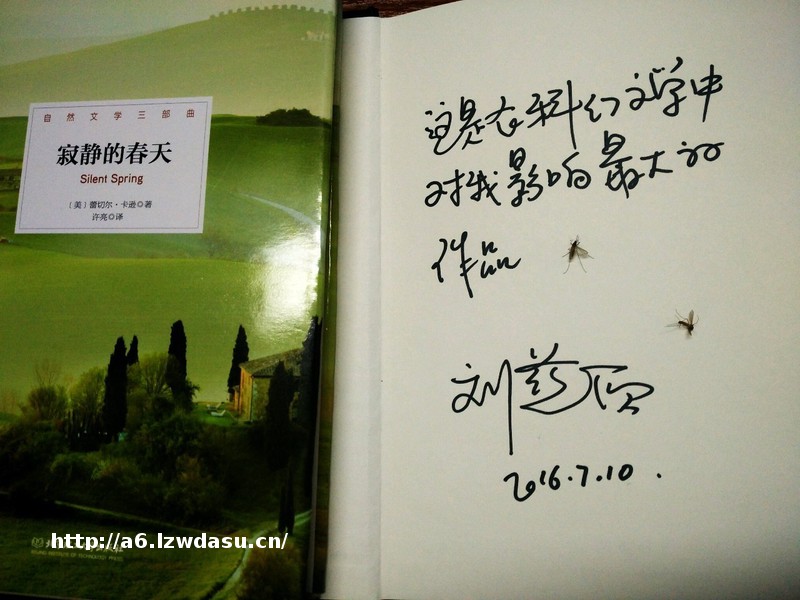 自然文学三部曲
寂静的春天
Silent Spring
［美］蕾切尔·卡逊◎著
许亮◎译
这是在科幻文学中
对我影响最大的
作品
刘慈欣
2016.7.10.
http://a6.lzwdasu.cn/